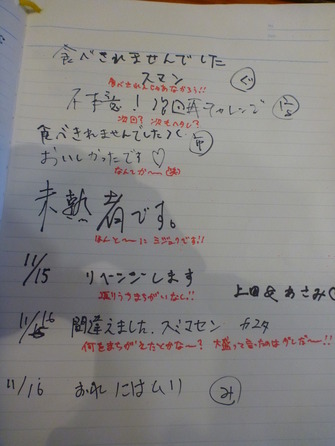 食べきれませんでした
スマン ぐ
食べきれんじゃあなかろう!!
不本意! 次回再チャレンジ
次回?次もヘタレ?
食べきれませんでした
おいしかったです♡
なんでか〜
未熟者です。
ほんと〜に ミジュクです!!
11/15 リベンジします
返りうちまちがいなし!!
上田 あさみ
11/16 間違えました、スミマセン
何をまちがえたとかな〜? 大盛って言ったのは だ〜!!
11/16 おれにはムリ み